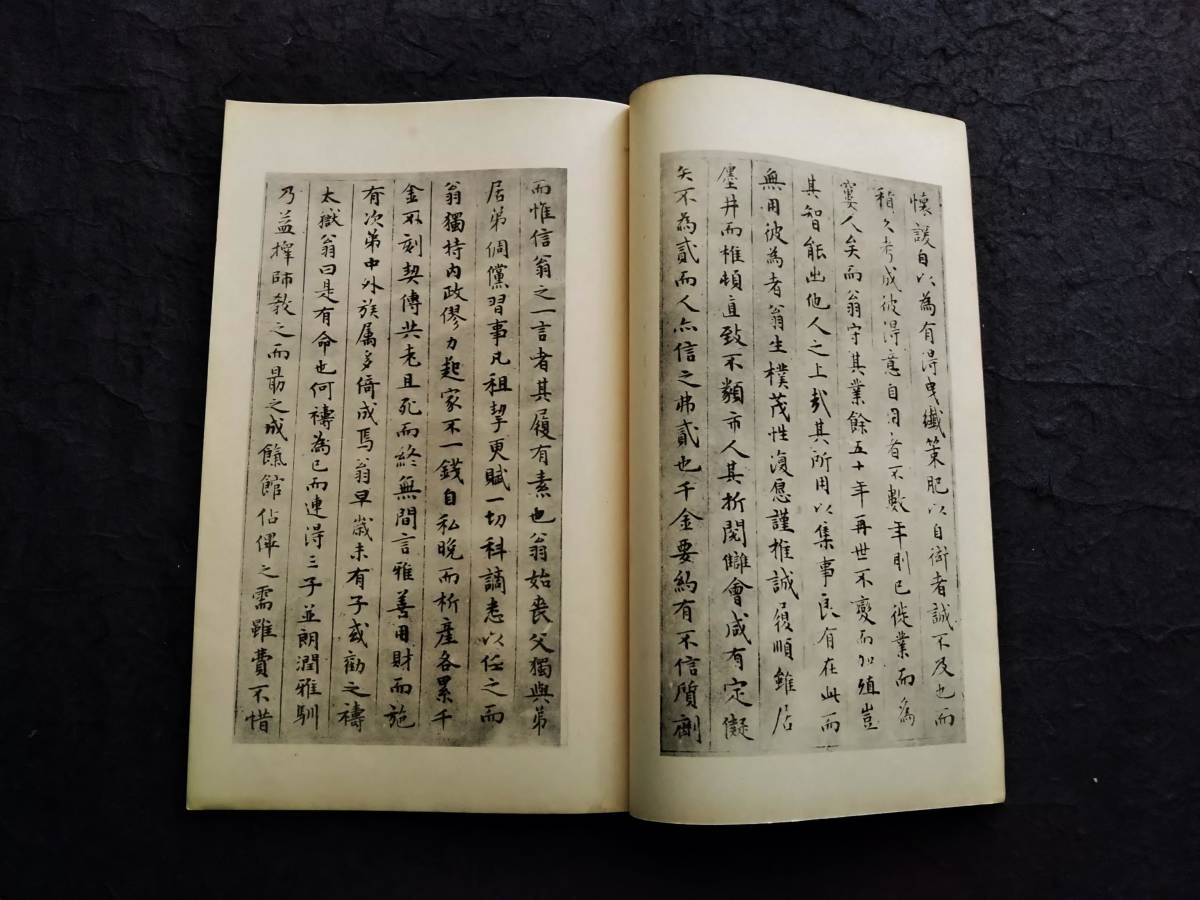 懷諼自以為有得曳纖策肥以自衒者誠不及也而
積久考成彼得意自用者不數年則已徙業而為
窶人矣而翁守其業餘五十年再世不變而加殖豈
其智能出他人之上哉其所用以集事良有在此而
無用彼為者翁生樸茂性復愿謹推誠履順雖居
廛井而椎頓直致不類市人其折閱讎會咸有定儗
矣不為貳而人亦信之弗貳也千金要約有不信質劑
而惟信翁之一言者其履有素也翁始喪父獨與弟
居弟倜儻習事凡租挈更賦一切科謫悉以任之而
翁獨持內政僇力起家不一錢自私晚而析產各累千
金不刻契傳共老且死而終無間言雅善用財而施
有次第中外族属多倚成焉翁早歲未有子或勸之禱
太嶽翁曰是有命也何禱為已而連得三子並朗潤雅馴
乃益擇師教之而勗之成餼館佔俾之需雖費不惜